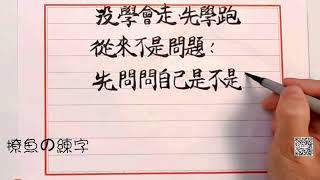 沒學會走先學跑
從來不是問題：
先問問自己是不是
撩魚の練字